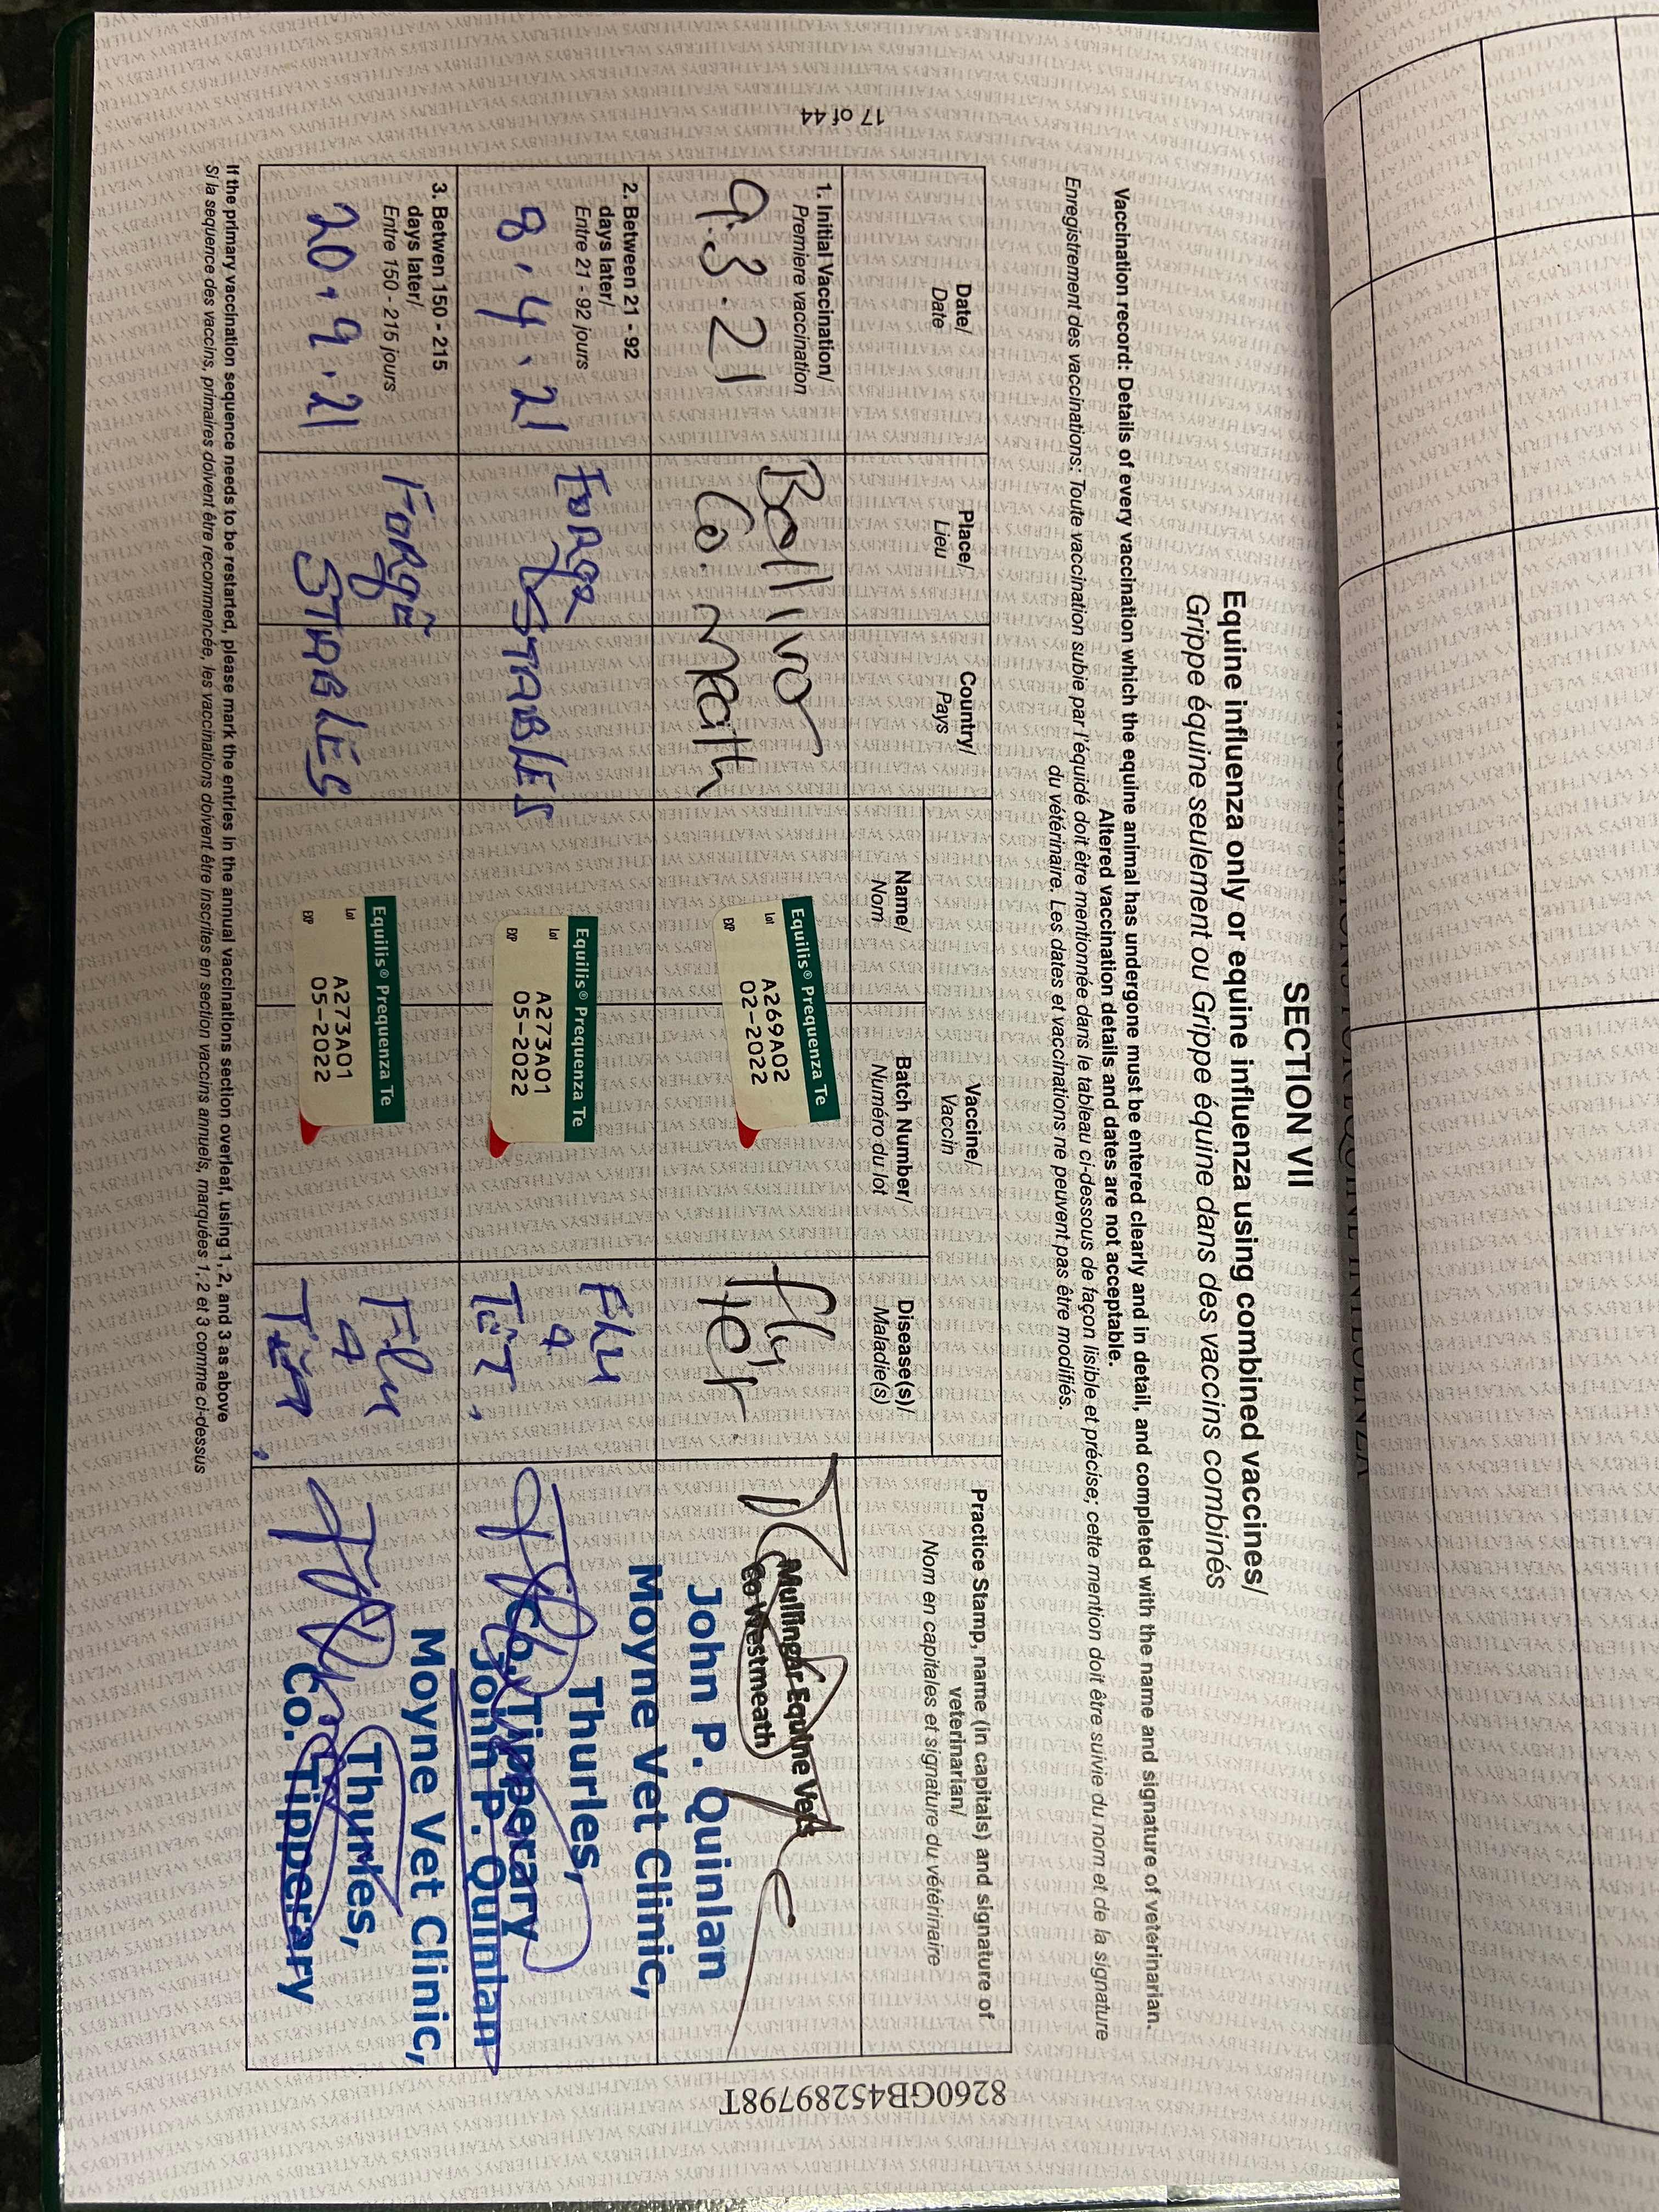 SECTION VII
Equine influenza only or equine influenza using combined vaccines/
Grippe équine seulement ou Grippe équine dans des vaccins combinés
Vaccination record: Details of every vaccination which the equine animal has undergone must be entered clearly and in detail, and completed with the name and signature of veterinarian.
Altered vaccination details and dates are not acceptable.
Enregistrement des vaccinations: Toute vaccination subie par l'équidé doit être mentionnée dans le tableau ci-dessous de façon lisible et précise; cette mention doit être suivie du nom et de la signature
du vétérinaire. Les dates et vaccinations ne peuvent pas être modifiés.
Date/
Date
Place/
Lieu
Country/
Pays
Vaccine/
Vaccin
Name/
Nom
Batch Number/
Numéro du lot
Disease(s)/
Maladie(s)
Practice Stamp, name (in capitals) and signature of
veterinarian/
Nom en capitales et signature du vétérinaire
1. Initial Vaccination/
Premiere vaccination
9.3.21
Ballivor
Co. Meath
Equilis® Prequenza Te
Lot A269A02
EXP 02-2022
Flu
Tet.
Mullingar Equine Vets
Co Westmeath
2. Between 21 - 92
days later/
Entre 21 - 92 jours
8.4.21
Forge
STABLES
Equilis® Prequenza Te
Lot A273A01
EXP 05-2022
Flu
TET.
John P. Quinlan
Moyne Vet Clinic,
Thurles,
Co. Tipperary
3. Betwen 150 - 215
days later/
Entre 150 - 215 jours
20.9.21
Forge
STABLES
Equilis® Prequenza Te
Lot A273A01
EXP 05-2022
Flu
John P. Quinlan
Moyne Vet Clinic,
Thurles,
Co. Tipperary
If the primary vaccination sequence needs to be restarted, please mark the entries in the annual vaccinations section overleaf, using 1, 2, and 3 as above
Si la sequence des vaccins, primaires doivent être recommencée, les vaccinations doivent être inscrites en section vaccins annuels, marquées 1, 2 et 3 comme ci-dessus
17 of 44
8260GB45289798T